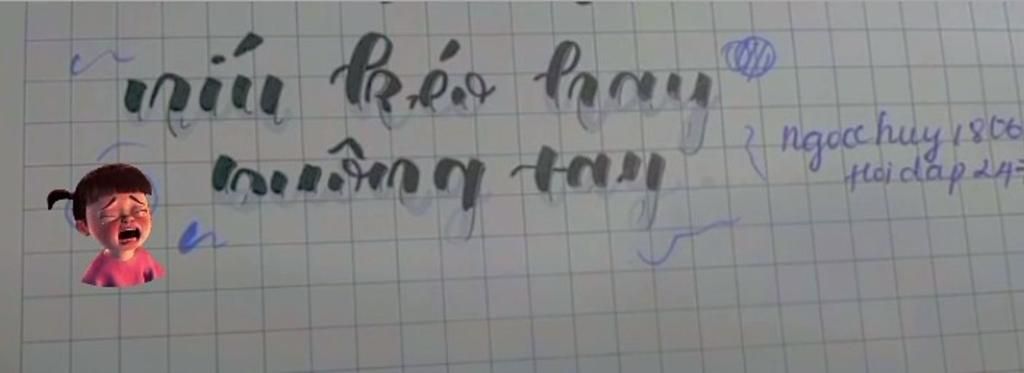 níu kéo hay
buông tay
ngocchuy1806
Hoidap247